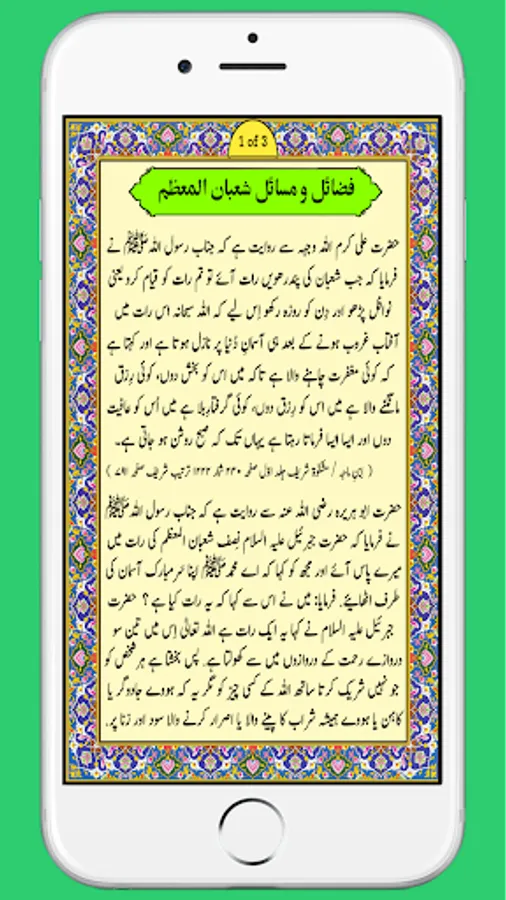 1 of 3
فضائل و مسائل شعبان المعظم
حضرت علی کرم اللہ وجہہ سے روایت ہے کہ جناب رسول اللہ ﷺ نے
فرمایا کہ جب شعبان کی پندرھویں رات آئے تو تم رات کو قیام کرو یعنی
نوافل پڑھو اور دِن کو روزہ رکھو اِس لیے کہ اللہ سبحانہ اس رات میں
آفتاب غروب ہونے کے بعد ہی آسمانِ دُنیا پر نازل ہوتا ہے اور کہتا ہے
کہ کوئی مغفرت چاہنے والا ہے تاکہ میں اس کو بخش دوں، کوئی رِزق
مانگنے والا ہے میں اس کو رِزق دوں، کوئی گرفتارِ بلا ہے میں اُس کو عافیت
دوں اور ایسا ایسا فرماتا رہتا ہے یہاں تک کہ صبح روشن ہو جاتی ہے۔
( ابن ماجہ / مشکوٰۃ شریف جلد اوّل صفحہ ۲۳۰ شمار ۱۲۲۲ ترتیب شریف صفحہ ۷۸۱ )
حضرت ابو ہریرہ رضی اللہ عنہ سے روایت ہے کہ جناب رسول اللہ ﷺ
نے فرمایا کہ حضرت جبرئیل علیہ السلام نِصف شعبان المعظم کی رات میں
میرے پاس آئے اور مجھ کو کہا کہ اے محمد ﷺ اپنا سَر مبارک آسمان کی
طرف اٹھایئے۔ فرمایا: میں نے اس سے کہا کہ یہ رات کیا ہے ؟ حضرت
جبرئیل علیہ السلام نے کہا یہ ایک رات ہے اللہ تعالیٰ اِس میں تین سو
دروازے رحمت کے دروازوں میں سے کھولتا ہے۔ پس بخشتا ہے ہر شخص کو
جو نہیں شریک کرتا ساتھ اللہ کے کسی چیز کو مگر یہ کہ ہووے جادوگر یا
کاہن یا ہووے ہمیشہ شراب کا پینے والا یا اصرار کرنے والا سود اور زنا پر۔